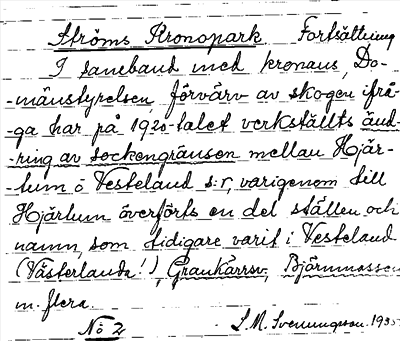 Ströms Kronopark Fortsättning
I samband med kronans, Do-
-mänstyrelsen, förvärv av skogen ifrå-
-ga har på 1920-talet verkställts änd-
-ring av sockengränsen mellan Hjär-
-tum o Vesteland s:r, varigenom till
Hjärtum överförts en del ställen och
namn, som tidigare varit i Vesteland
(Västerlanda!), Grankärrsv, Björnmossen
m. flera.
No 2 S.M. Svenungsson. 1935